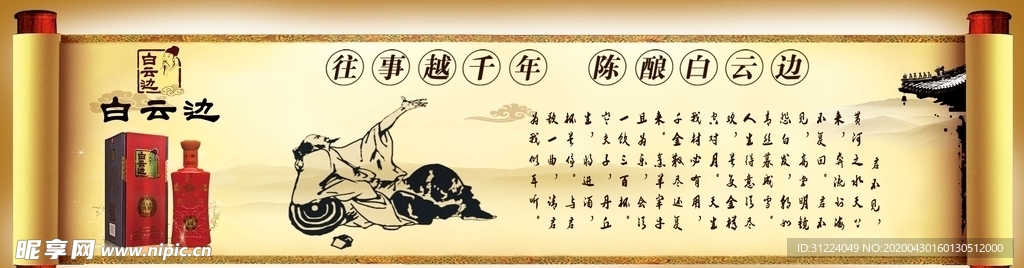 往事越千年 陈酿白云边
白云边
白云边
白云边
君不见，
黄河之水天上
来，奔流到海
不复回。君不
见，高堂明镜
悲白发，朝如
青丝暮成雪。
人生得意须尽
欢，莫使金樽
空对月。天生
我材必有用，
千金散尽还复
来。烹羊宰牛
且为乐，会须
一饮三百杯。
岑夫子，丹丘
生，将进酒，
杯莫停。与君
歌一曲，请君
为我倾耳听。
昵享网 www.nipic.cn
ID:31224049 NO:20200430160130512000